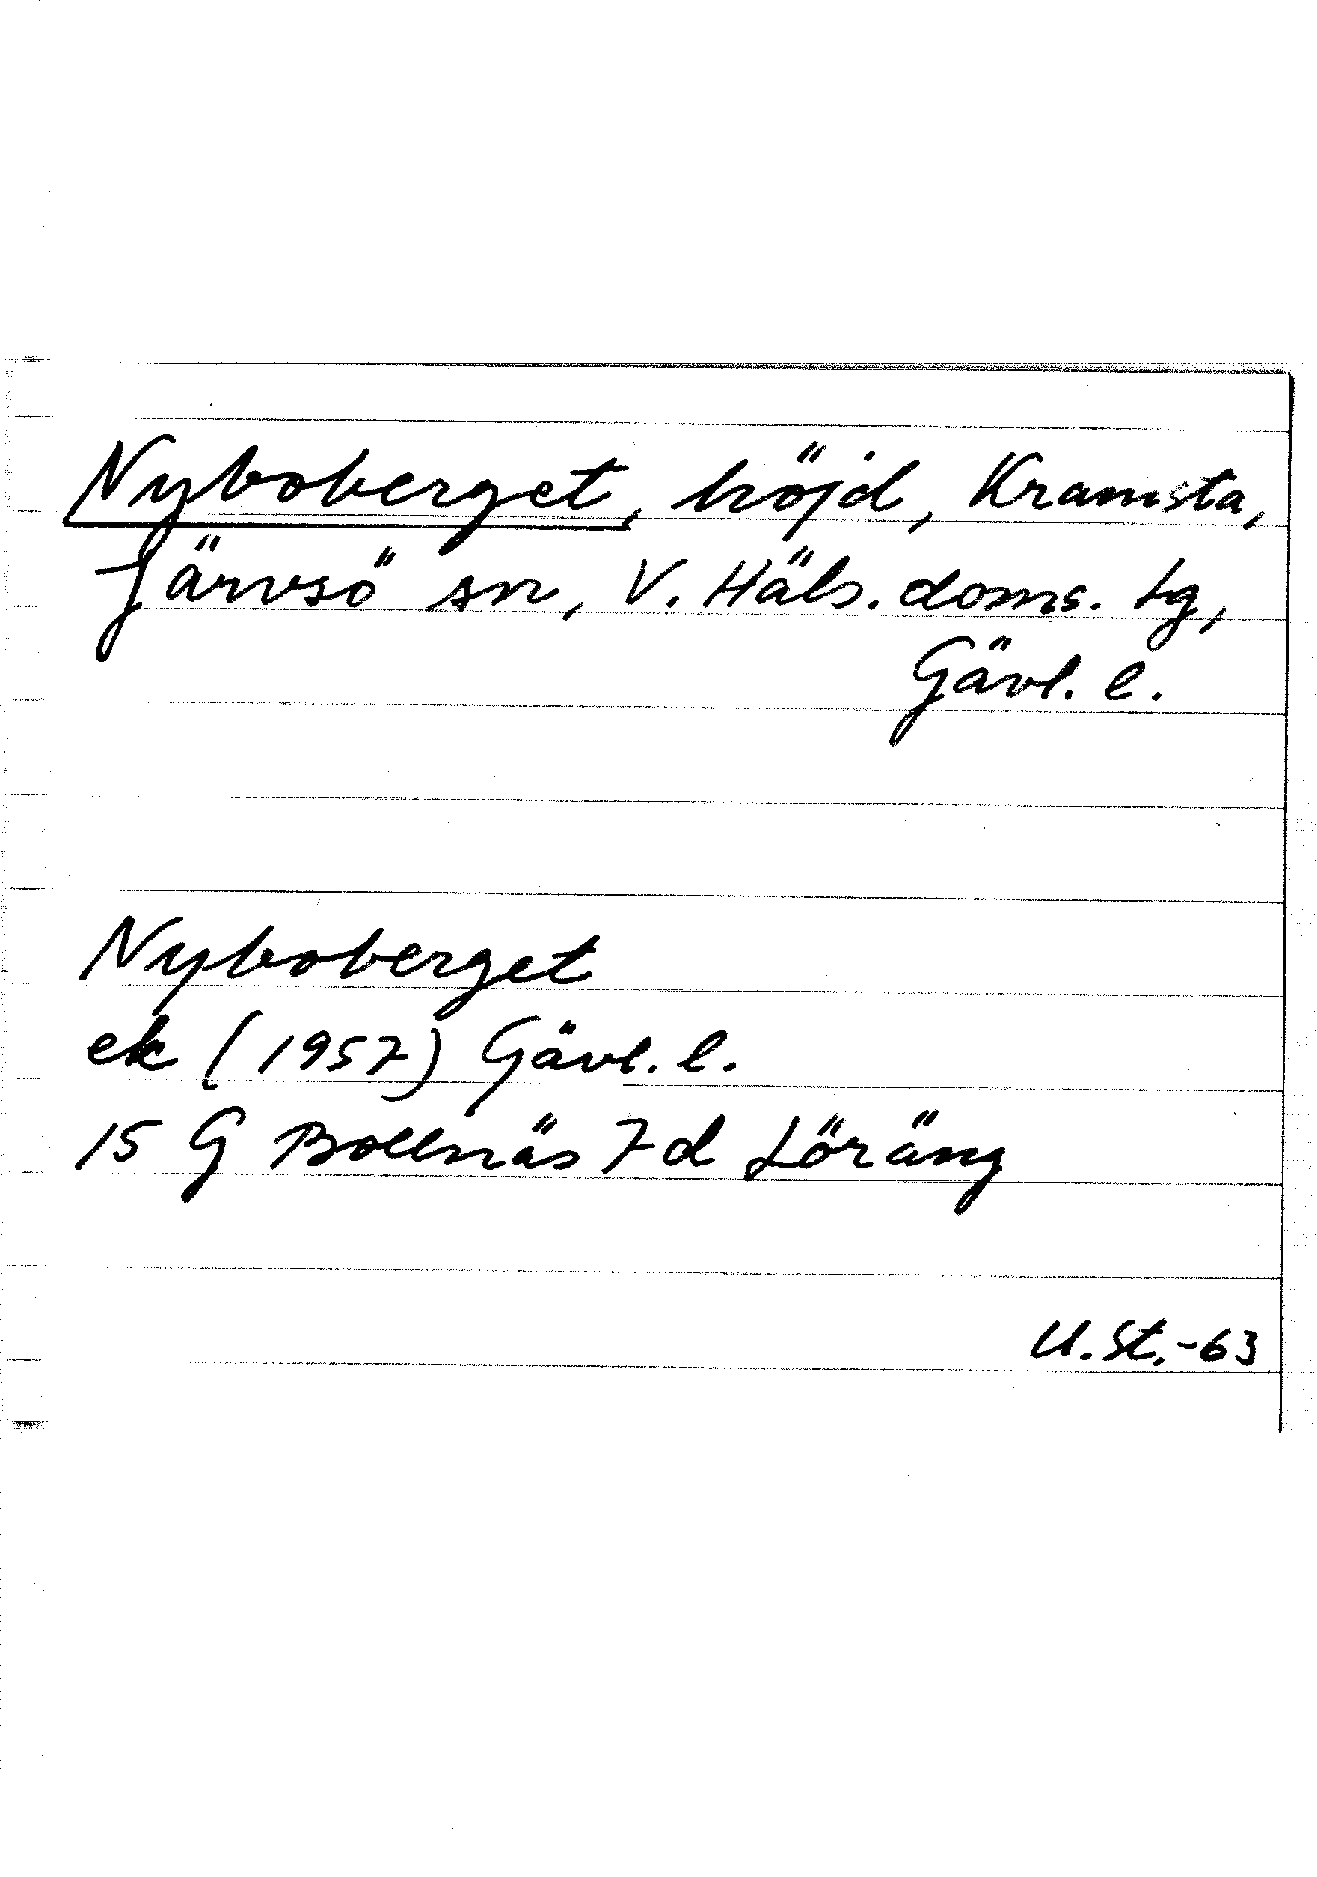 Nyboberget, höjd, Kramsta,
Järvsö sn, V. Häls. doms. tg,
Gävl. l.
Nyboberget
ek (1957) Gävl. l.
15 G Bollnäs 7d Löräng
U. St. -63